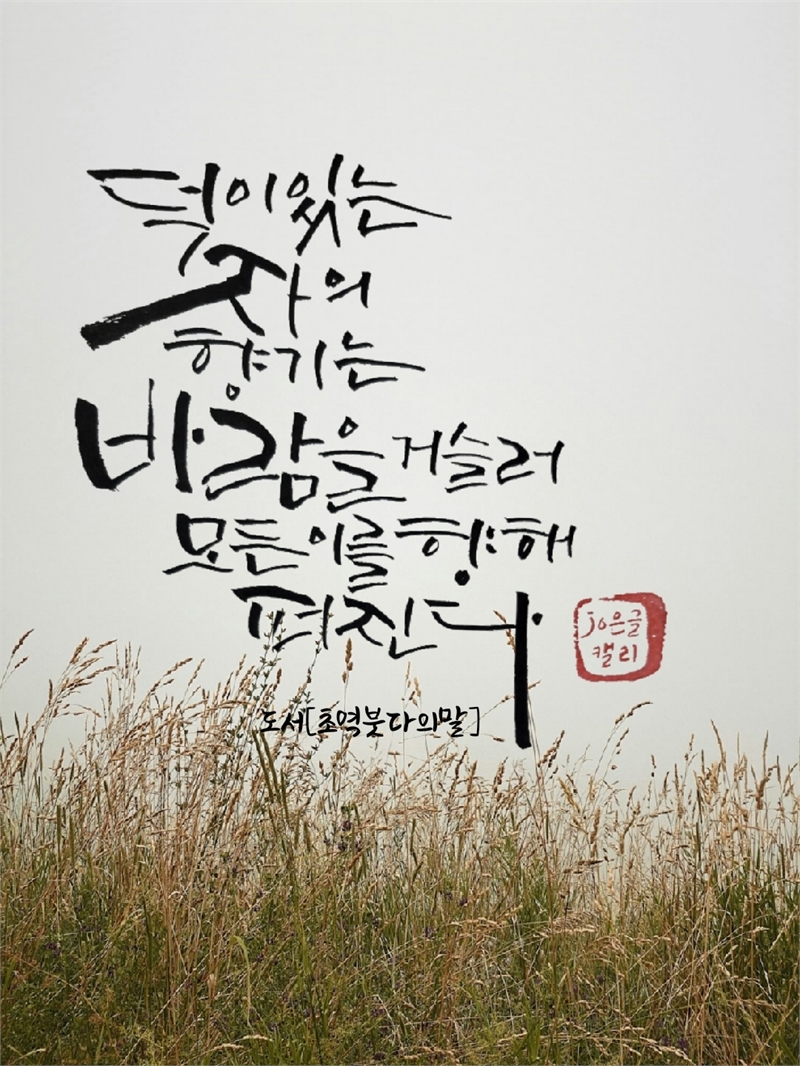 덕이있는
자의
향기는
바람을 거슬러
모든 이를 향해
펴진다
jo은글
캘리
도서[초역붓다의말]